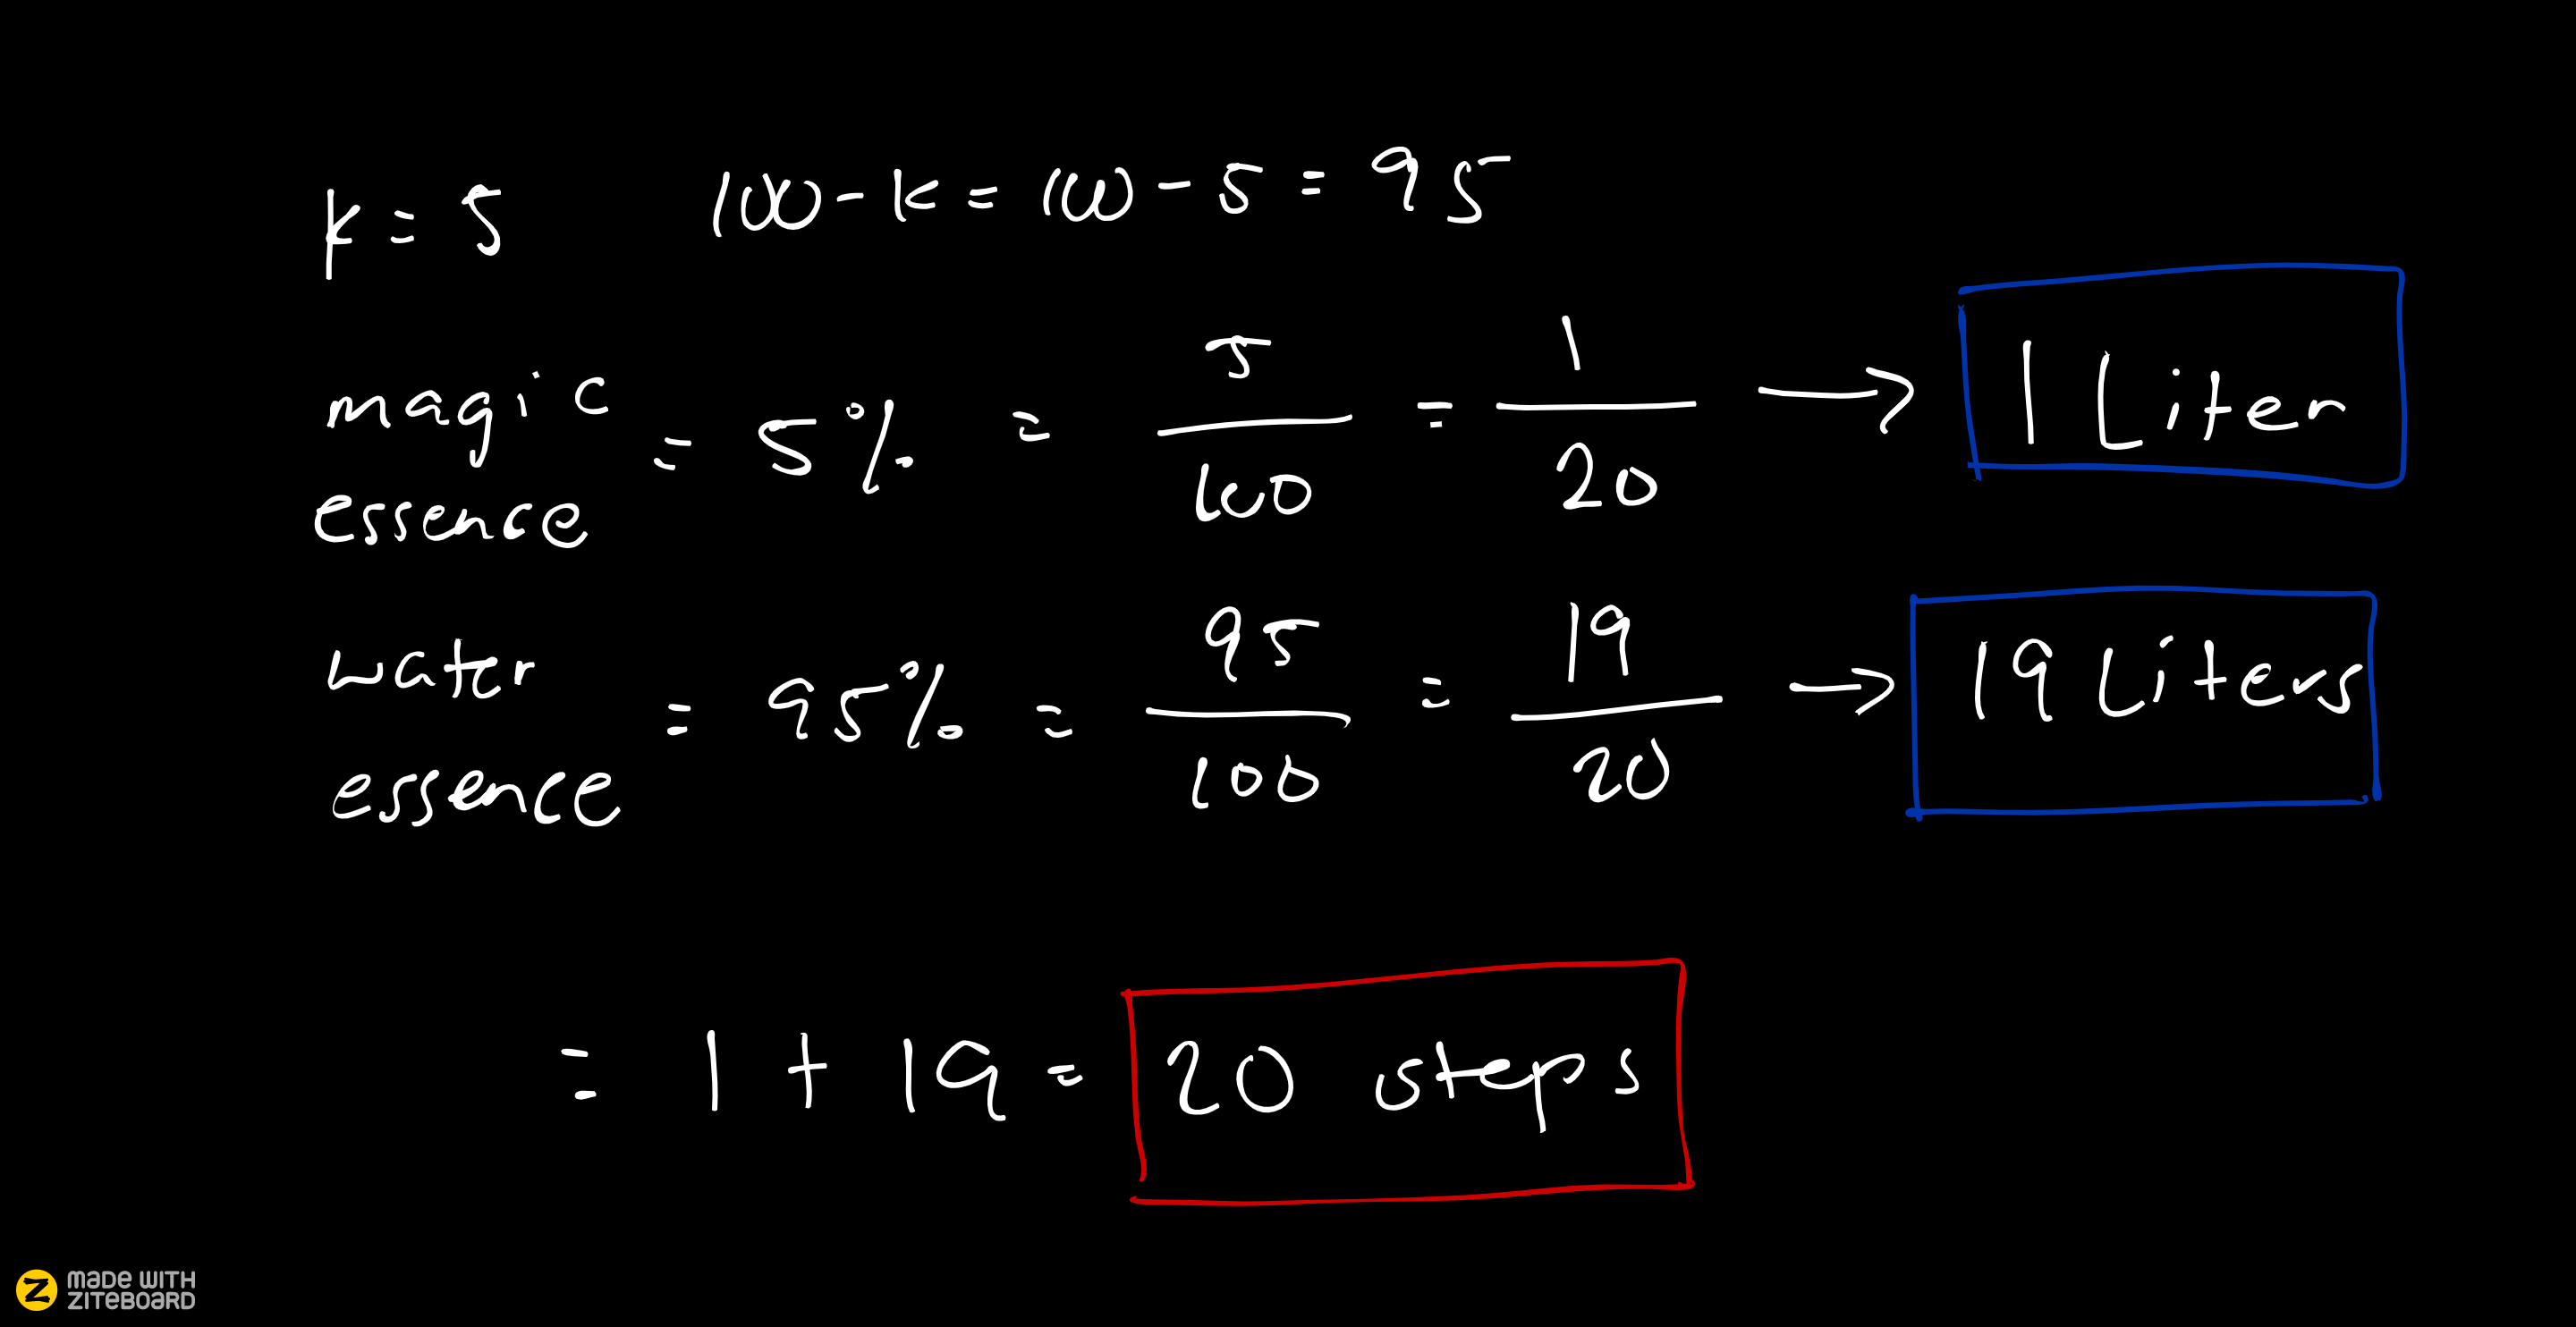 k = 5 100 - k = 100 - 5 = 95
magic essence = 5% = 5/100 = 1/20 → 1 Liter
water essence = 95% = 95/100 = 19/20 → 19 Liters
= 1 + 19 = 20 steps
Z MADE WITH ZITEBOARD